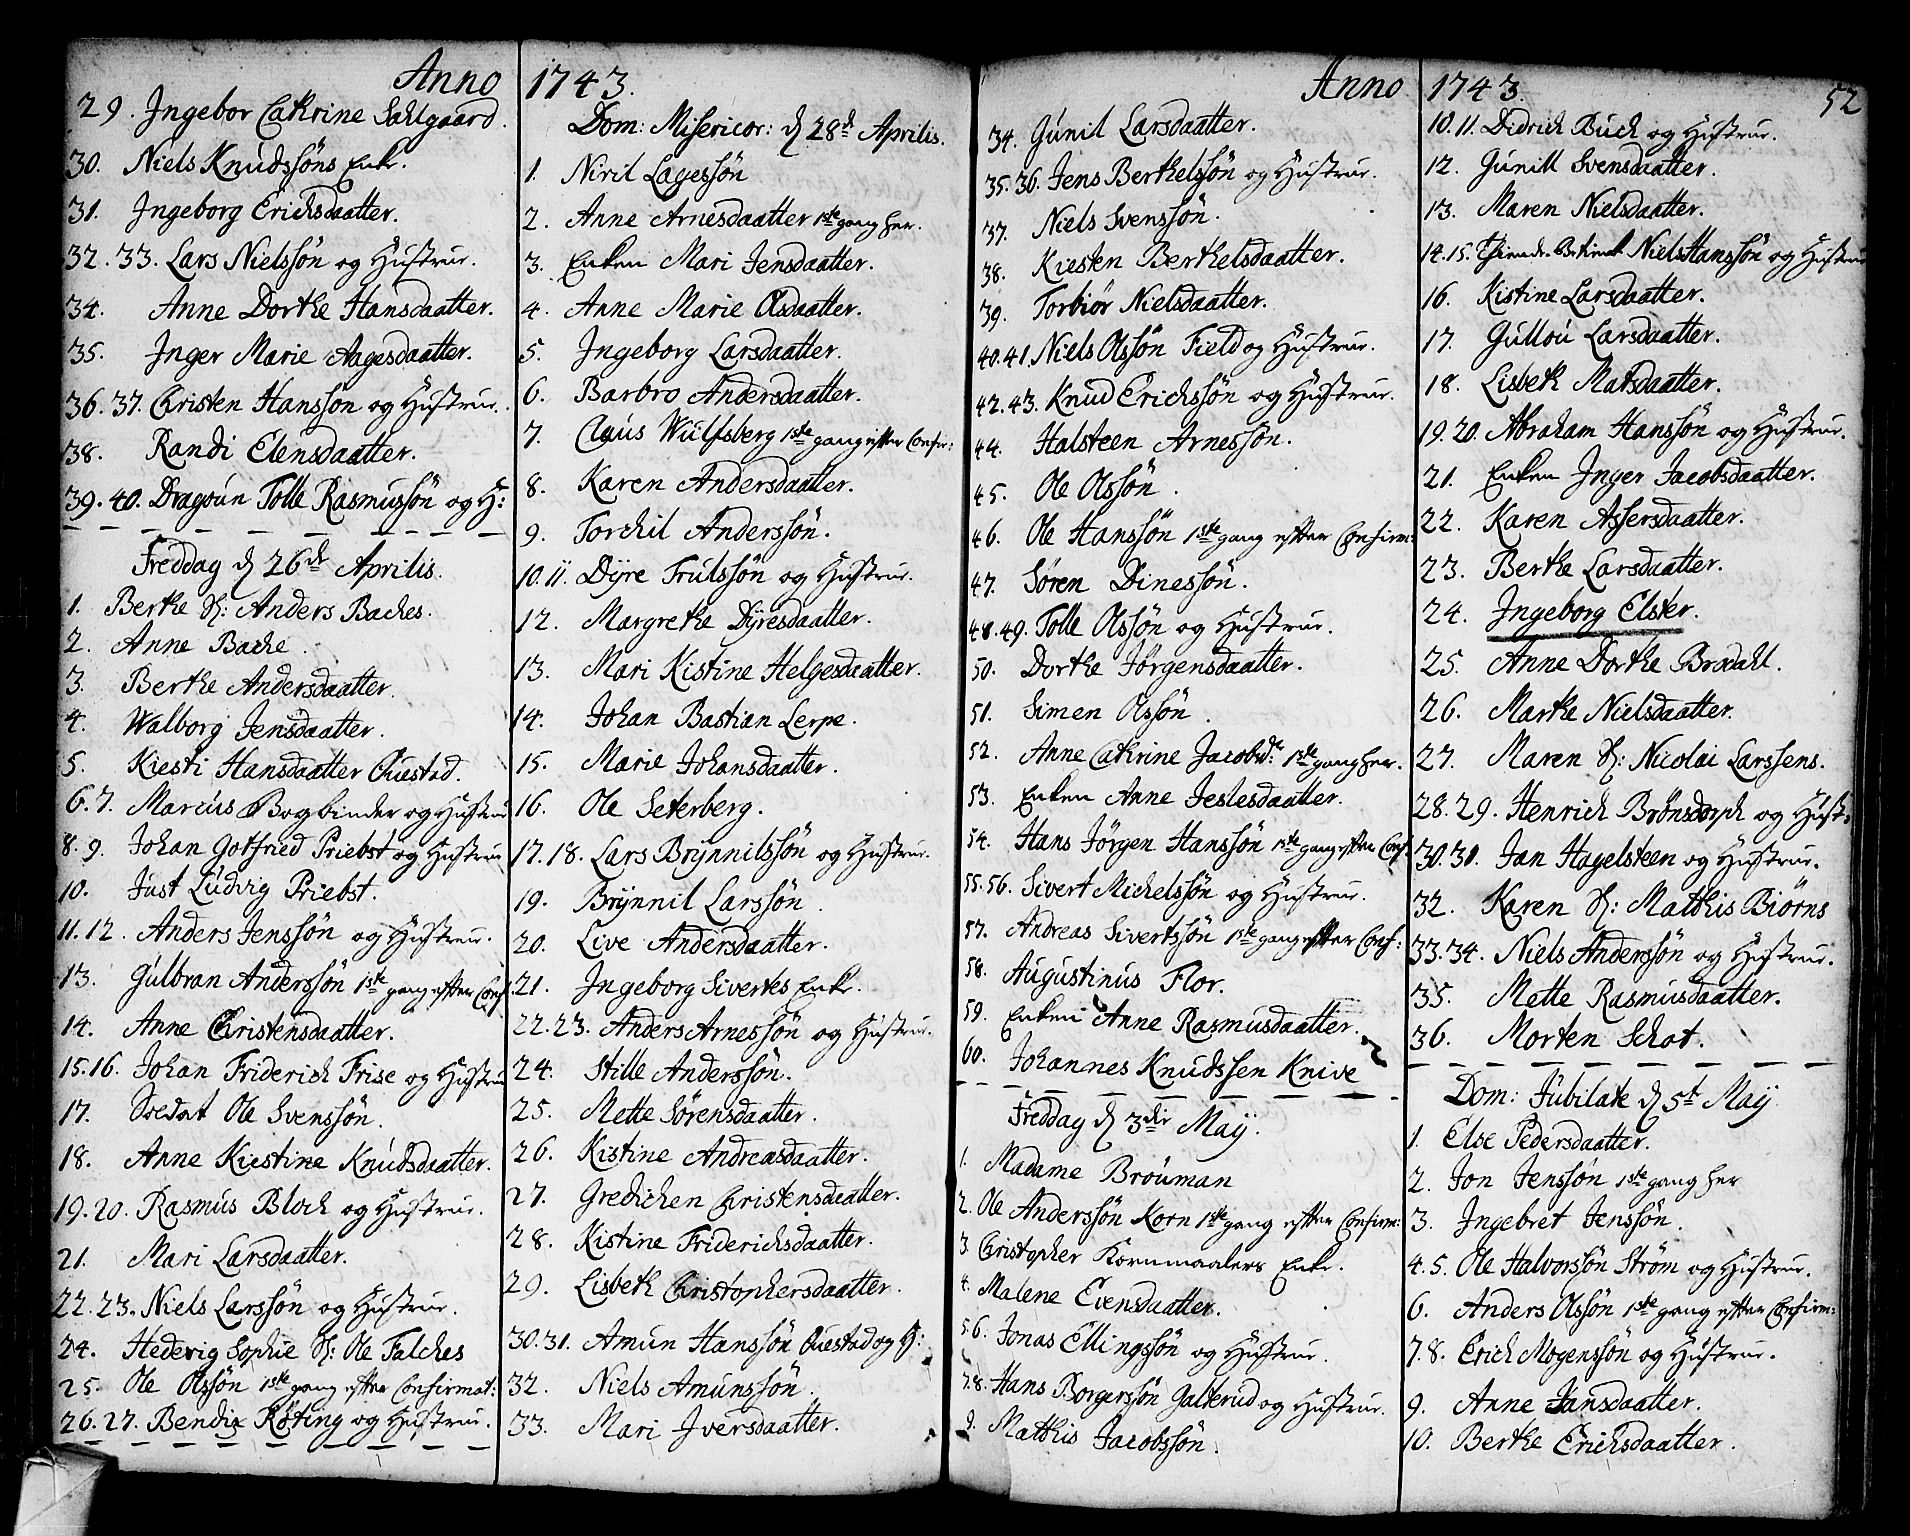 Anno
29. Ingebor Catrine Sahlgaard.
30. Niels Knudssöns Enke.
31. Ingeborg Erichsdaatter.
32. 33. Lars Nielssön og Hustrue.
34. Anne Dorthe Hansdaatter.
35. Inger Marie Aagesdaatter.
36. 37. Christen Hansson og Hustrue.
38. Randi Elensdaatter.
39. 40. Dragoun Tolle Rasmussön og H:
Freddag d 26de Aprilis.
1. Berthe S: Anders Baches.
2. Anne Bache.
3. Berthe Andersdaatter.
4. Walborg Jensdaatter.
5. Kiesti Hansdaatter Questad.
6. 7. Marcus Bogbinder og Hustrue
8. 9. Johan Gotfried Priebst og Hustrue
10. Just Ludvig Priebst.
11. 12. Anders Jenssön og Hustrue.
13. Gulbran Anderssön 1ste gang efter Conf.
14. Anne Christensdaatter.
15. 16. Johan Friderich Frise og Hustrue
17. Soldat Ole Svenssön.
18. Anne Kiestine Knudsdaatter.
19. 20. Rasmus Bloch og Hustrue.
21. Mari Larsdaatter.
22. 23. Niels Larssön og Hustrue.
24. Hedevig Sophie S: Ole Falches
25. Ole Olssön 1ste gang efter Confirmat:
26. 27. Bendix Röting og Hustrue.
1743.
Dom: Misericor: d 28de Aprilis.
1. Niril Lagessön
2. Anne Arnesdaatter 1ste gang her.
3. Enken Mari Jensdaatter.
4. Anne Marie Olsdaatter.
5. Ingeborg Larsdaatter.
6. Barbro Andersdaatter.
7. Claus Wulfsberg 1ste gang efter Confir:
8. Karen Andersdaatter.
9. Torchil Anderssön.
10. 11. Dÿre Trulssön og Hustrue.
12. Margrethe Dÿresdaatter.
13. Mari Kistine Helgesdaatter.
14. Johan Bastian Lerpe.
15. Marie Johansdaatter.
16. Ole Seterberg.
17. 18. Lars Brÿnnilssön og Hustrue.
19. Brÿnnil Larssön.
20. Live Andersdaatter.
21. Ingeborg Sivertes Enke.
22. 23. Anders Arnessön og Hustrue.
24. Stille Anderssön.
25. Mette Sörensdaatter.
26. Kistine Andreasdaatter.
27. Gredichen Christensdaatter.
28. Kistine Friderichsdaatter.
29. Lisbeth Christophersdaatter.
30. 31. Amun Hanssön Questad og H:
32. Niels Amunssön.
33. Mari Iversdaatter.
Anno
34. Gunil Larsdaatter.
35. 36. Jens Berthelssön og Hustrue.
37. Niels Svenssön.
38. Kiesten Berthelsdaatter.
39. Torbiör Nielsdaatter.
40. 41. Niels Olssön Field og Hustrue.
42. 43. Knud Erichssön og Hustrue.
44. Halsteen Arnessön.
45. Ole Olssön.
46. Ole Hanssön 1ste gang efter Confirm:
47. Sören Dinessön.
48. 49. Tolle Olssön og Hustrue.
50. Dorthe Jörgensdaatter.
51. Simen Olssön.
52. Anne Cathrine Jacobsdr 1ste gang her.
53. Enken Anne Jeslesdaatter.
54. Hans Jörgen Hanssön 1ste gang efter Conf.
55. 56. Sivert Michelssön og Hustrue.
57. Andreas Sivertssön 1ste gang efter Conf:
58. Augustinus Flor.
59. Enken Anne Rasmusdaatter.
60. Johannes Knudssen Knive
Freddag d 3die Maÿ.
1. Madame Brouman
2. Ole Anderssön Korn 1ste gang efter Confirm:
3. Christopher Kornmaalers Enke.
4. Malene Evensdaatter.
5. 6. Jonas Ellingssön og Hustrue.
7. 8. Hans Borgerssön Galterud og Hustrue.
9. Matthis Jacobssön.
1743
52
10. 11. Didrich Buch og Hustrue.
12. Gunill Svensdaatter.
13. Maren Nielsdaatter.
14. 15. Niels Hanssön og Hustrue
16. Kistine Larsdaatter.
17. Gullou Larsdaatter.
18. Lisbeth Matsdaatter.
19. 20. Abraham Hanssön og Hustrue.
21. Enken Inger Jacobsdaatter.
22. Karen Assersdaatter.
23. Berthe Larsdaatter.
24. Ingeborg Elster.
25. Anne Dorthe Bradahl.
26. Marthe Nielsdaatter.
27. Maren S: Nicolai Larssens.
28. 29. Henrich Brönsdorph og Hust.
30. 31. Jan Hagelsteen og Hustrue.
32. Karen S: Matthis Biörns
33. 34. Niels Anderssön og Hustrue.
35. Mette Rasmusdaatter.
36. Morten Schot.
Dom: Jubilate d 5te Maÿ
1. Else Pedersdaatter.
2. Jon Jenssön 1ste gang her
3. Ingebret Jenssön.
4. 5. Ole Halvorssön Ström og Hustrue.
6. Anders Olssön 1ste gang efter Confirm:
7. 8. Erich Mogenssön og Hustrue.
9. Anne Jansdaatter.
10. Berthe Erichsdaatter.